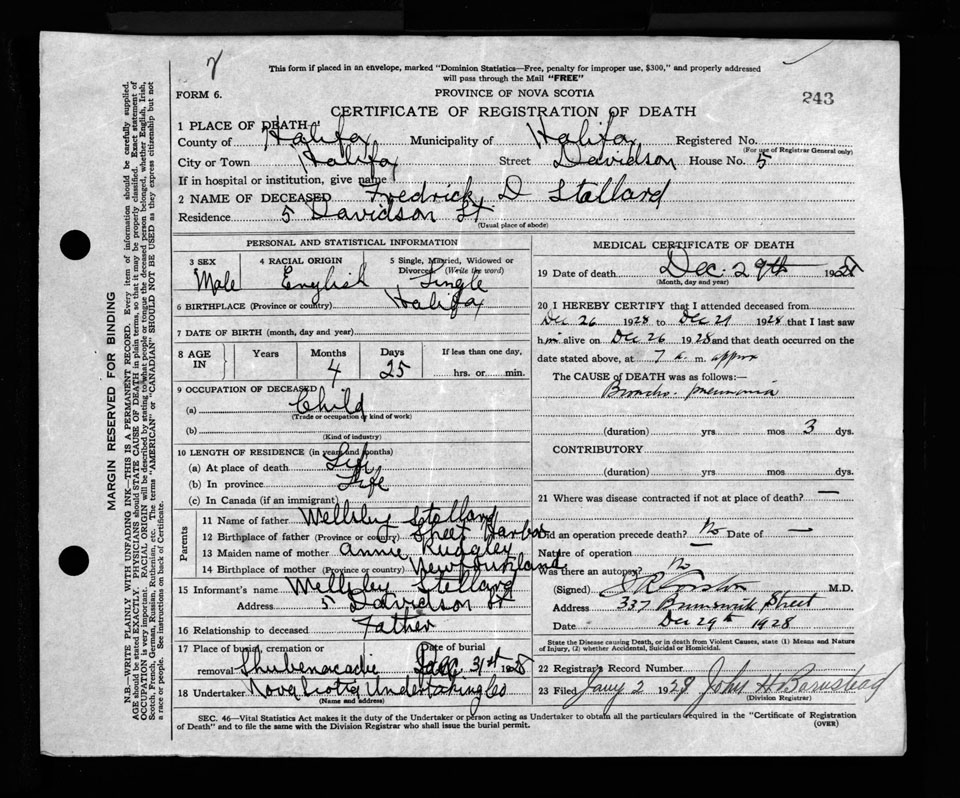 This form if placed in an envelope, marked "Dominion Statistics—Free, penalty for improper use, $300," and properly addressed
will pass through the Mail "FREE"
FORM 6.
PROVINCE OF NOVA SCOTIA
243
CERTIFICATE OF REGISTRATION OF DEATH
1 PLACE OF DEATH
County of Halifax Municipality of Halifax Registered No.
(For use of Registrar General only)
City or Town Halifax Street Davidson House No. 5
If in hospital or institution, give name
2 NAME OF DECEASED Fredrick D Stallard
Residence 5 Davidson St
(Usual place of abode)
PERSONAL AND STATISTICAL INFORMATION
3 SEX Male
4 RACIAL ORIGIN English
5 Single, Married, Widowed or Divorced (Write the word) Single
6 BIRTHPLACE (Province or country) Halifax
7 DATE OF BIRTH (month, day and year)
8 AGE IN Years Months 4 Days 25 If less than one day, hrs. or min.
9 OCCUPATION OF DECEASED
(a) Child
(Trade or occupation or kind of work)
(b)
(Kind of industry)
10 LENGTH OF RESIDENCE (in years and months)
(a) At place of death Life
(b) In province Life
(c) In Canada (if an immigrant)
Parents
11 Name of father Wellsley Stallard
12 Birthplace of father (Province or country) Sheet Harbor
13 Maiden name of mother Annie Rudgley
14 Birthplace of mother (Province or country) Newfoundland
15 Informant's name Wellsley Stellard
Address 5 Davidson St
16 Relationship to deceased Father
17 Place of burial, cremation or removal Shubenacadie Date of burial Dec 31st 1928
18 Undertaker Nova Scotia Undertaking Co
(Name and address)
MEDICAL CERTIFICATE OF DEATH
19 Date of death Dec. 29th 1928
(Month, day and year)
20 I HEREBY CERTIFY that I attended deceased from
Dec 26 1928 to Dec 29 1928 that I last saw
him alive on Dec 26 1928 and that death occurred on the
date stated above, at 7 a. m. approx
The CAUSE OF DEATH was as follows:—
Broncho-pneumonia
(duration) yrs mos 3 dys.
CONTRIBUTORY
(duration) yrs. mos dys.
21 Where was disease contracted if not at place of death? —
Did an operation precede death? No Date of —
Nature of operation —
Was there an autopsy? No
(Signed) M.D.
Address 337 Brunswick Street
Date Dec 29th 1928
State the Disease causing Death, or in death from Violent Causes, state (1) Means and Nature
of Injury, (2) whether Accidental, Suicidal or Homicidal.
22 Registrar's Record Number
23 Filed Jany 2 1929 John H Barnstead
(Division Registrar)
SEC. 46—Vital Statistics Act makes it the duty of the Undertaker or person acting as Undertaker to obtain all the particulars required in the "Certificate of Registration
of Death" and to file the same with the Division Registrar who shall issue the burial permit.
(OVER)
MARGIN RESERVED FOR BINDING
N.B.—WRITE PLAINLY WITH UNFADING INK—THIS IS A PERMANENT RECORD. Every item of information should be carefully supplied.
AGE should be stated EXACTLY. PHYSICIANS should STATE CAUSE OF DEATH in plain terms, so that it may be properly classified. Exact statement of
OCCUPATION is very important. RACIAL ORIGIN will be described by stating to what people or tongue the deceased person belonged, whether English, Irish,
Scotch, French, German, Russian, Ruthenian, etc. The terms "AMERICAN" or "CANADIAN" SHOULD NOT BE USED as they express citizenship but not
a race or people. See instructions on back of Certificate.